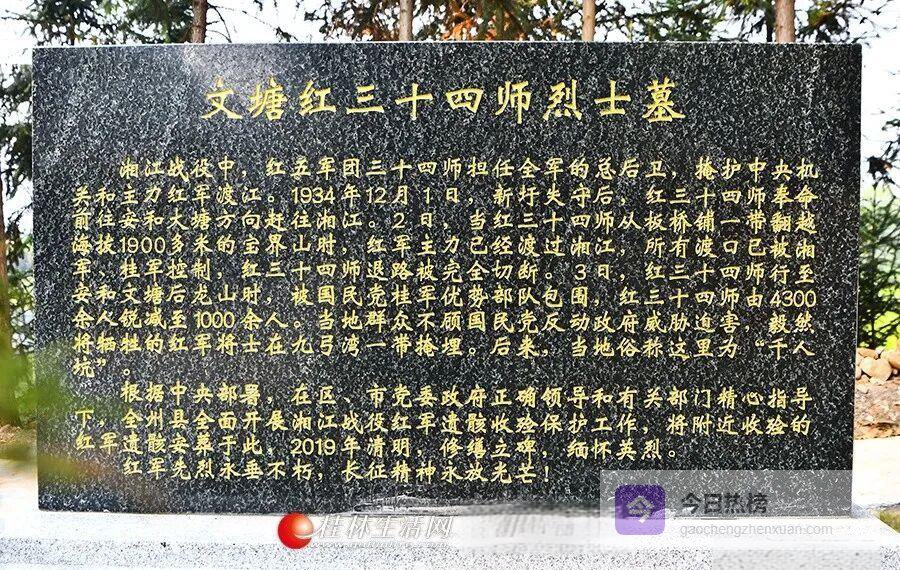 文塘红三十四师烈士墓
湘江战役中，红五军团三十四师担任全军的总后卫，掩护中央机
关和主力红军渡江。1934年12月1日，新圩失守后，红三十四师奉命
前往安和大塘方向赶往湘江。2日，当红三十四师从板桥铺一带翻越
海拔1900多米的宝界山时，红军主力已经渡过湘江，所有渡口已被湘
军、桂军控制，红三十四师退路被完全切断。3日，红三十四师行至
安和文塘后龙山时，被国民党桂军优势部队包围，红三十四师由4300
余人锐减至1000余人。当地群众不顾国民党反动政府威胁迫害，毅然
将牺牲的红军将士在九弓湾一带掩埋。后来，当地俗称这里为“千人
坑”。
根据中央部署，在区、市党委政府正确领导和有关部门精心指导
下，全州县全面开展湘江战役红军遗骸收殓保护工作，将附近收殓的
红军遗骸安葬于此，2019年清明，修缮立碑，缅怀英烈。
红军先烈永垂不朽，长征精神永放光芒！
桂林生活网
今日热榜
gaochengzhenxuan.com